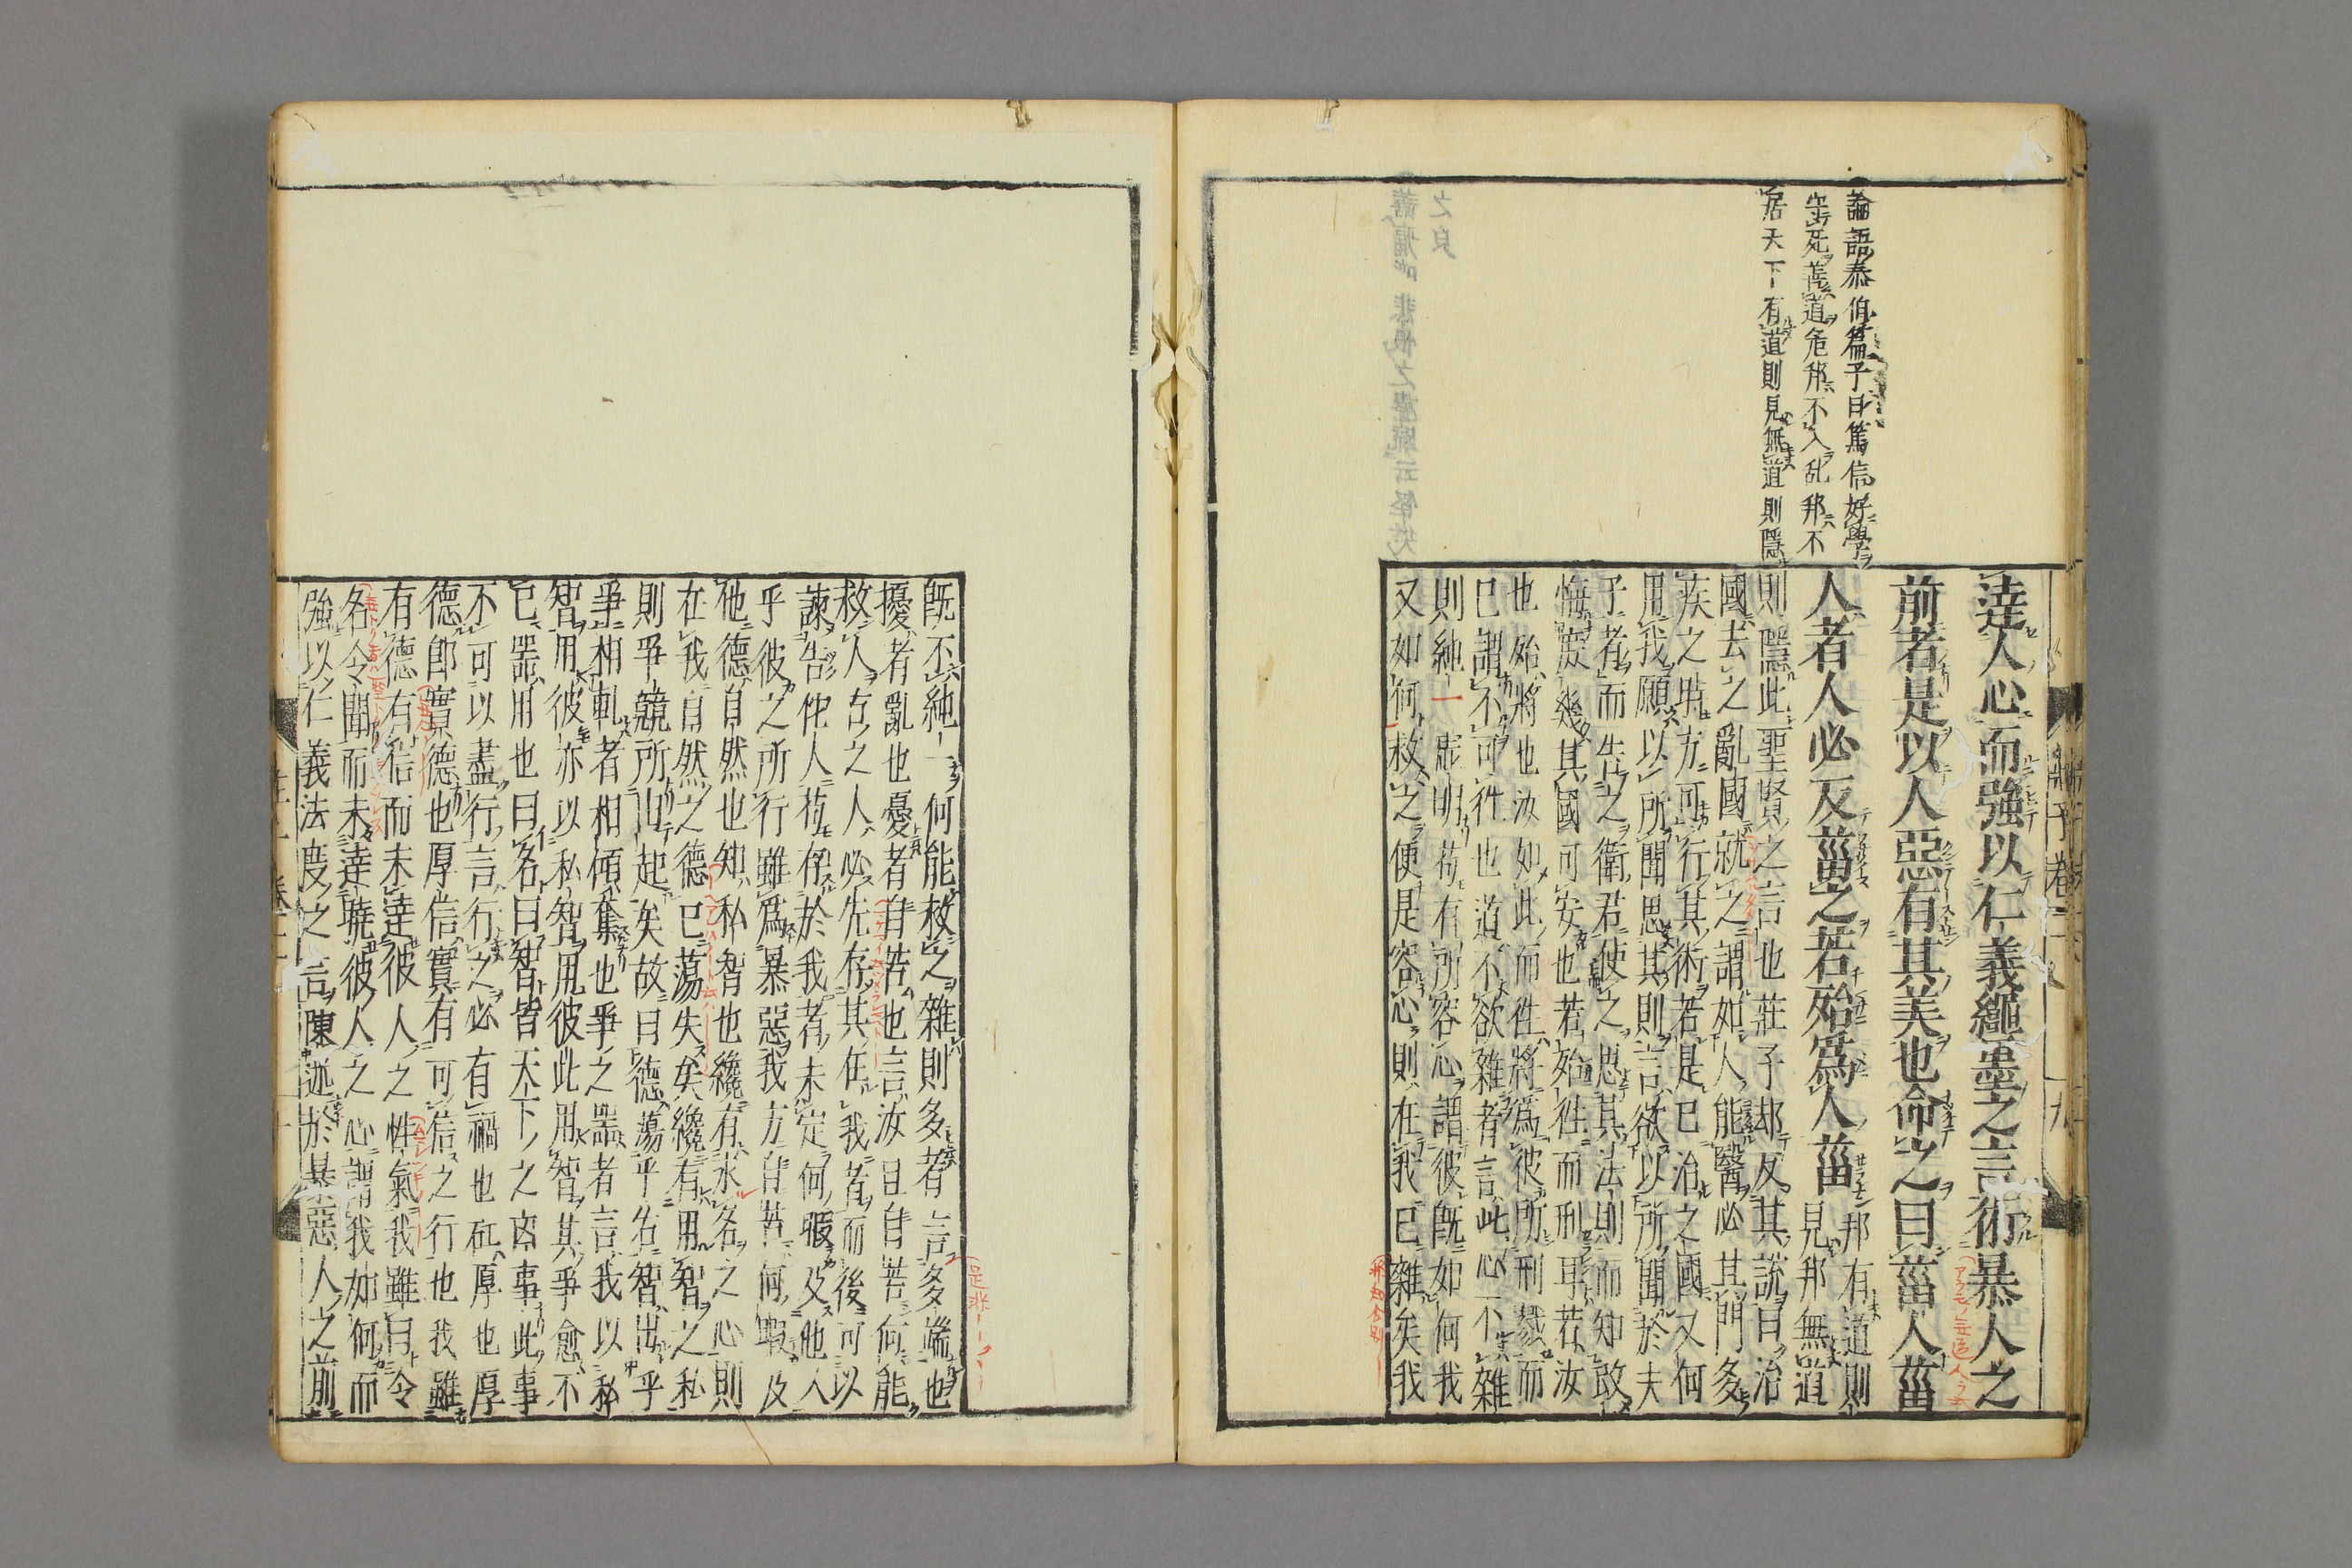 論語泰伯篇子曰篤信好學
守死善道危邦不入乱邦不
居天下有道則見無道則隱
達人心而強以仁義繩墨之言術暴人之
前者是以人惡有其美也命之曰菑人菑
人者人必反菑之若殆爲人菑
邦有道則
見邦無道
則隱此聖賢之言也莊子却反其説曰治
國去之亂國就之謂如人能醫必其門多
疾之時方可行其術若是已治之國又何
用我願以所聞思其則言欲以所聞於夫
子者而告之衛君使之思其法則而知改
悔庶幾其國可安也若殆往而刑耳若汝
也殆將也汝如此而往將爲彼所刑戮而
已謂不可往也道不欲雜者言此心不雜
則純一虛明苟有所容心謂彼既如何我
又如何救之便是容心則在我已雜矣我
既不純一何能救之雜則多者言多端也
擾者亂也憂者自苦也言汝且自苦何能
救人古之人必先存其在我者而後可以
諫告他人苟存於我者未定何暇及他人
乎彼之所行雖爲暴惡我方自苦何暇及
他德自然也知私智也纔有求名之心則
在我自然之德已蕩失矣纔有用智之私
則爭競所由起矣故曰德蕩乎名智出乎
爭相軋者相傾奪也爭之器者言我以私
智用彼亦以私智用彼此用智其爭愈不
已器用也曰名曰智皆天下之凶事此事
不可以盡行言行之必有禍也矼厚也厚
德即實德也厚信實有可信之行也我雖
有德有信而未達彼人之性氣我雖曰令
名令聞而未達曉彼人之心謂我如何而
強以仁義法度之言陳述於暴惡人之前